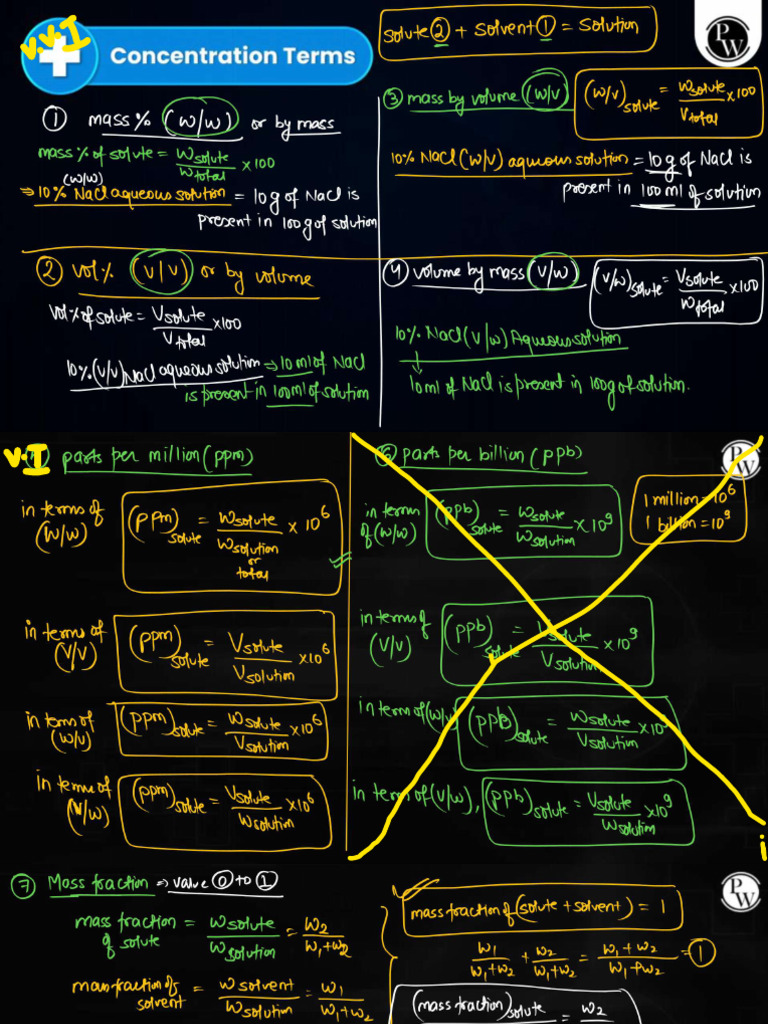 v.v.I
Concentration Terms
Solute ② + Solvent ① = Solution
PW
① mass % (w/w) or by mass
mass % of solute = Wsolute / Wtotal × 100
(w/w)
⇒ 10% NaCl aqueous solution = 10g of NaCl is
present in 100g of solution
③ mass by volume (w/v)
(w/v)solute = Wsolute / Vtotal × 100
10% NaCl (w/v) aqueous solution = 10g of NaCl is
present in 100ml of solution
② vol % (v/v) or by volume
vol % of solute = Vsolute / Vtotal × 100
10% (v/v) NaCl aqueous solution ⇒ 10ml of NaCl
is present in 100ml of solution
4) volume by mass (v/w)
(v/w)solute = Vsolute / Wtotal × 100
10% NaCl (v/w) Aqueous solution
↓
10ml of NaCl is present in 100g of solution.
V.I
parts per million (ppm)
in terms of
(w/w)
(ppm)solute = Wsolute / Wsolution or total × 10⁶
in terms of
(v/v)
(ppm)solute = Vsolute / Vsolution × 10⁶
in terms of
(w/v)
(ppm)solute = Wsolute / Vsolution × 10⁶
in terms of
(v/w)
(ppm)solute = Vsolute / Wsolution × 10⁶
⑥ parts per billion (ppb)
PW
1 million = 10⁶
1 billion = 10⁹
in terms
of (w/w)
(ppb)solute = Wsolute / Wsolution × 10⁹
in terms of
(v/v)
(ppb)solute = Vsolute / Vsolution × 10⁹
in term of (w/v)
(ppb)solute = Wsolute / Vsolution × 10⁹
in term of (v/w),
(ppb)solute = Vsolute / Wsolution × 10⁹
i
⑦ Mass fraction ⇒ value ⓪ to ①
PW
mass fraction of solute = Wsolute / Wsolution = W₂ / W₁+W₂
mass fraction of solvent = Wsolvent / Wsolution = W₁ / W₁+W₂
mass fraction of (solute + solvent) = 1
W₁ / W₁+W₂ + W₂ / W₁+W₂ = W₁+W₂ / W₁+W₂ = ①
(mass fraction)solute = W₂